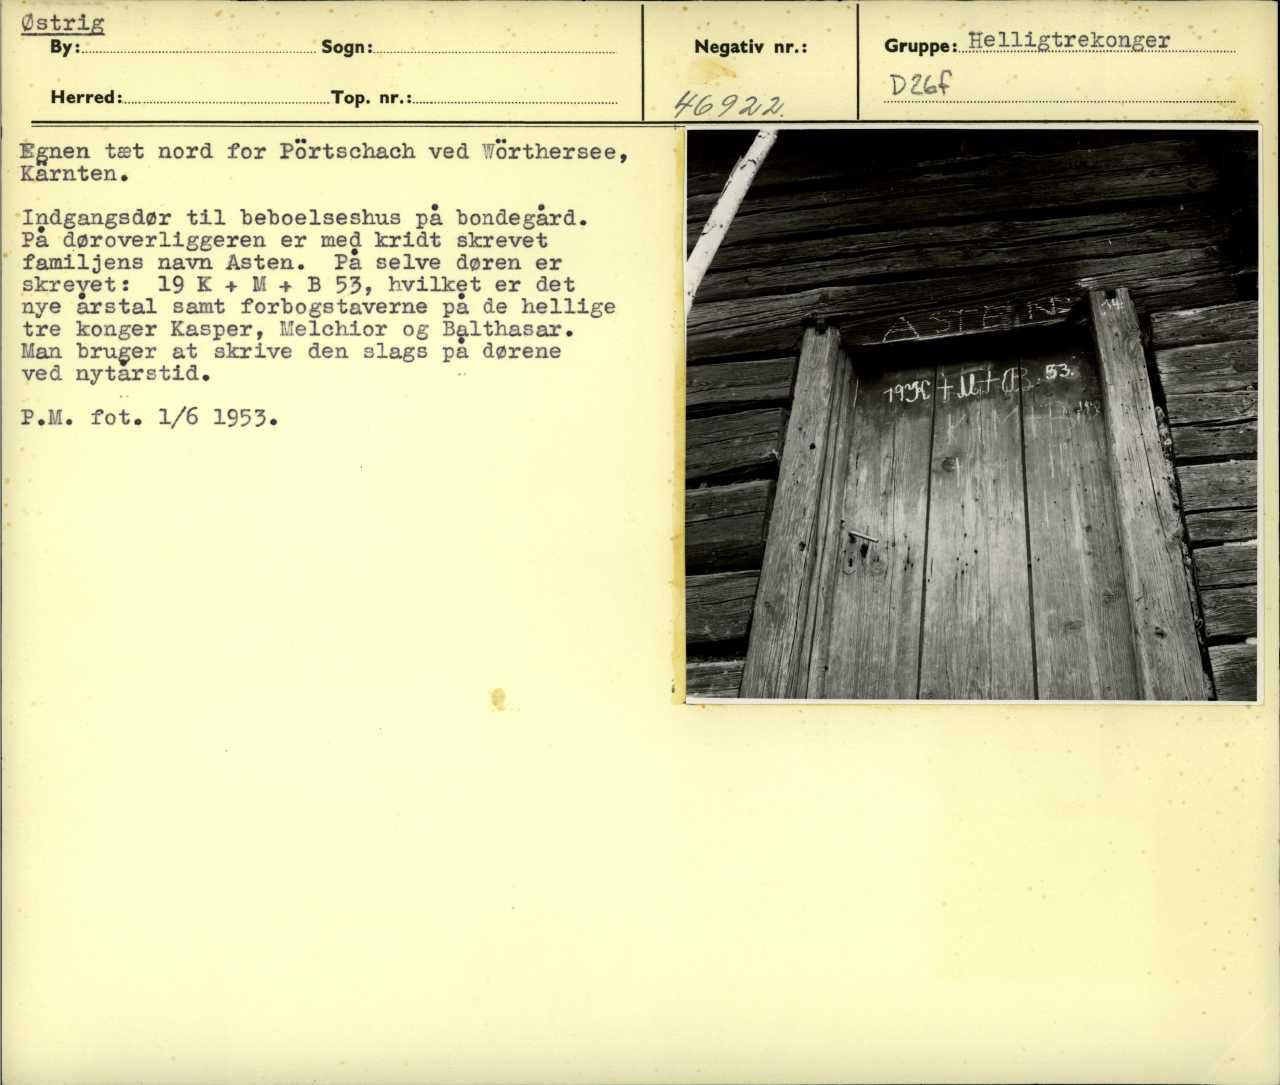 Østrig
By: Sogn: Negativ nr.: Gruppe: Helligtrekonger
D26f
Herred: Top. nr.: 46922.
Egnen tæt nord for Pörtschach ved Wörthersee,
Kärnten.
Indgangsdør til beboelseshus på bondegård.
På døroverliggeren er med kridt skrevet
familjens navn Asten.  På selve døren er
skrevet:  19 K + M + B 53, hvilket er det
nye årstal samt forbogstaverne på de hellige
tre konger Kasper, Melchior og Balthasar.
Man bruger at skrive den slags på dørene
ved nytårstid.
P.M. fot. 1/6 1953.
19K + M + B. 53.